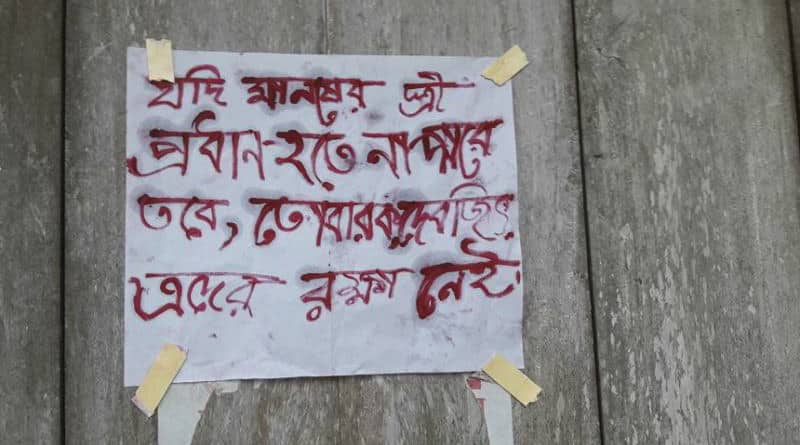 যদি মানষের স্ত্রী
প্রধান-হতে না পারে
তবে, তোবারক দেবজিৎ
এদের রক্ষা নেই